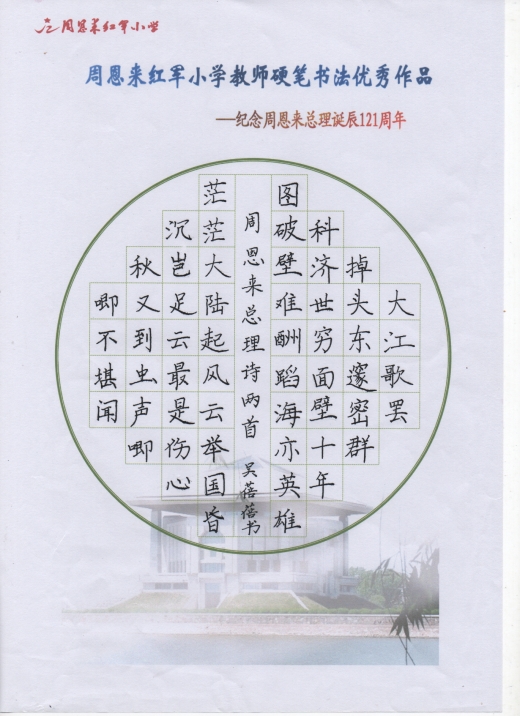 周恩来红军小学
周恩来红军小学教师硬笔书法优秀作品
——纪念周恩来总理诞辰121周年
大江歌罢
掉头东邃密群
科济世穷面壁十年
图破壁难酬蹈海亦英雄
周恩来总理诗两首 吴蓓蓓书
茫茫大陆起风云举国昏
沉岂足云最是伤心
秋又到虫声唧
唧不堪闻